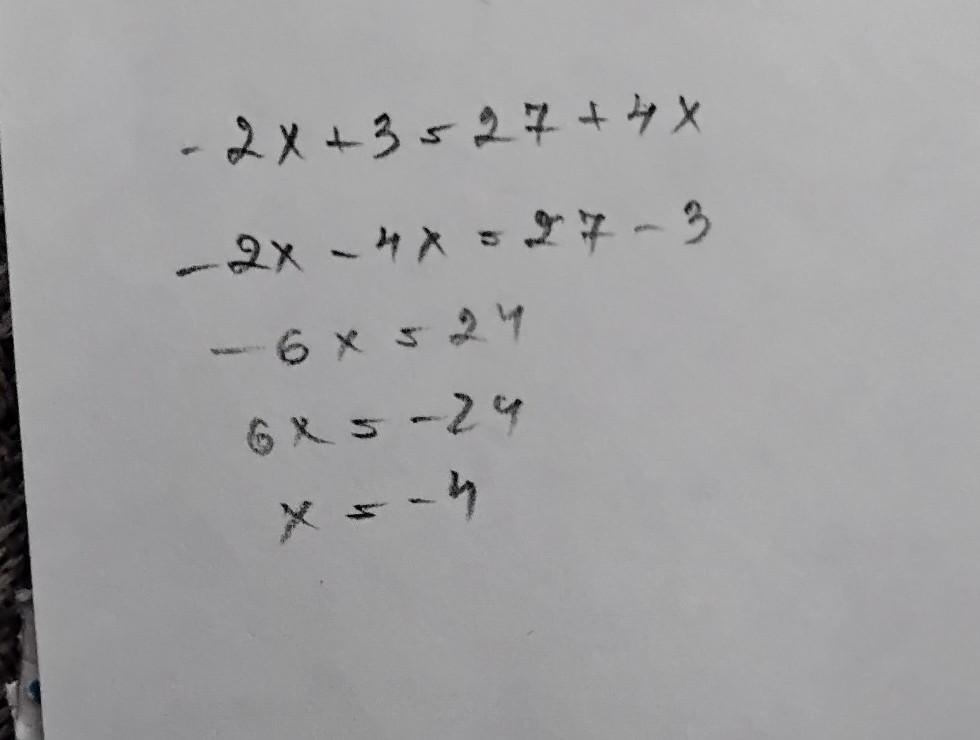 -2x+3=27+4x
-2x-4x=27-3
-6x=24
6x=-24
x=-4